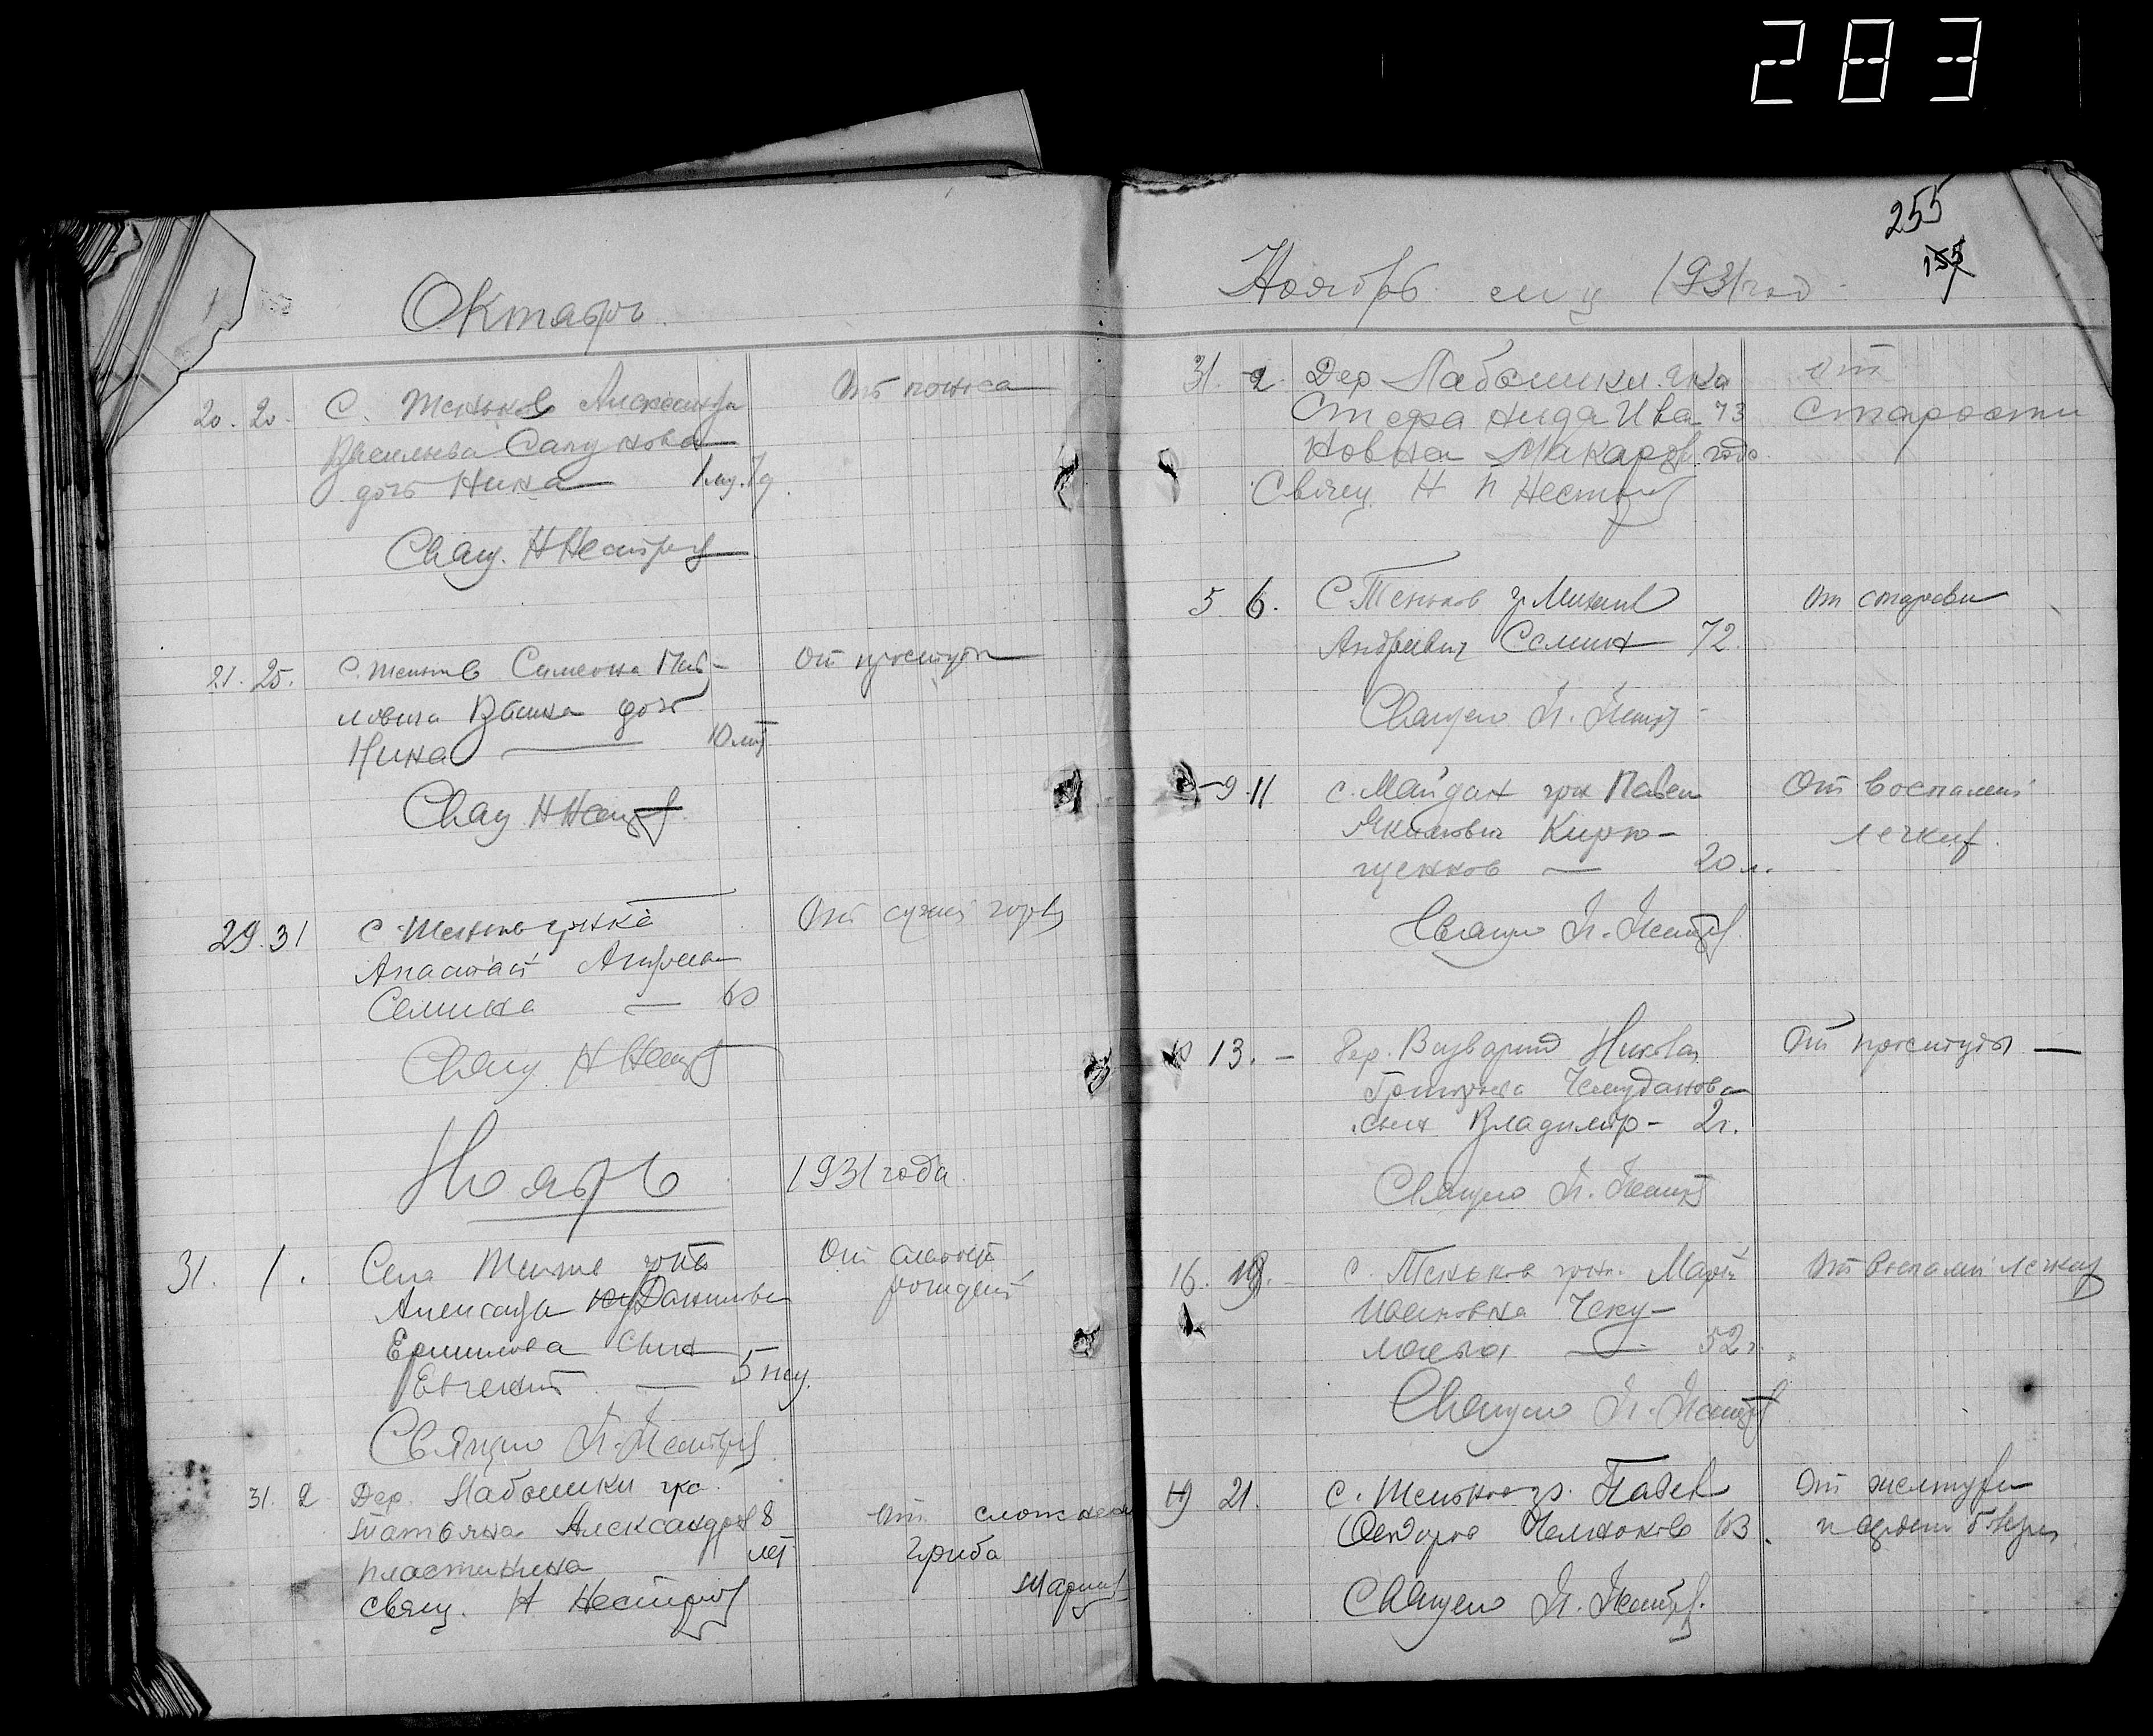 283
Октябрь
20. 20. С. Теньков Александра
Васильева Сапунова
дочь Нина 1 му. 7 д
От поноса
Свящ. Н Нестеров
21. 25. С. Теньков Симеона Пав-
ловича дочь
Нина — 10 лет
От простуды
Свящ. Н Нестеров
29. 31 С. Теньков гржка
Анастасия Андреевна
Семина — 60
От
Свящ Н Нестеров
Ноябрь 1931 года
31. 1. Села
Александра Данилова
Ермилова сын
Евгений — 5 нед.
От слабости
рождения
Священ Н. Нестеров
31. 2 Дер. Лабышки гр.
Татьяна Александров 8
Пластинина лет
От сложнен
гриба
Свящ. Н Нестеров
255
155
Ноябрь м-ц 1931 год
31. 2. Дер Лабышки гр-ка
Стефанида Ива 73
новна Макаров года
От
старости
Свящ Н П Нестеров
5 6. С. Теньков гр Михаил
Андреевич Семин 72.
От старости
Священ Н. Нестеров
9. 11 с. Майдан грн Павел
Якимович Кирю-
щенков — 20 л.
От воспалени
легких
Священ Н. Нестеров
10 13. — Дер. Николая
Григорьева Чемуданова
сын Владимир — 2 г.
От простуды —
Священ Н. Нестеров
16. 19. — с. Теньков гржн. Мария
Ивановна Чеку-
лаева — 52 г.
От воспален легких
Священ Н. Нестеров
19 21. с. Теньков гр. Павел
Федоров Челноков 63.
От желтухи
и
Священ Н. Нестеров.